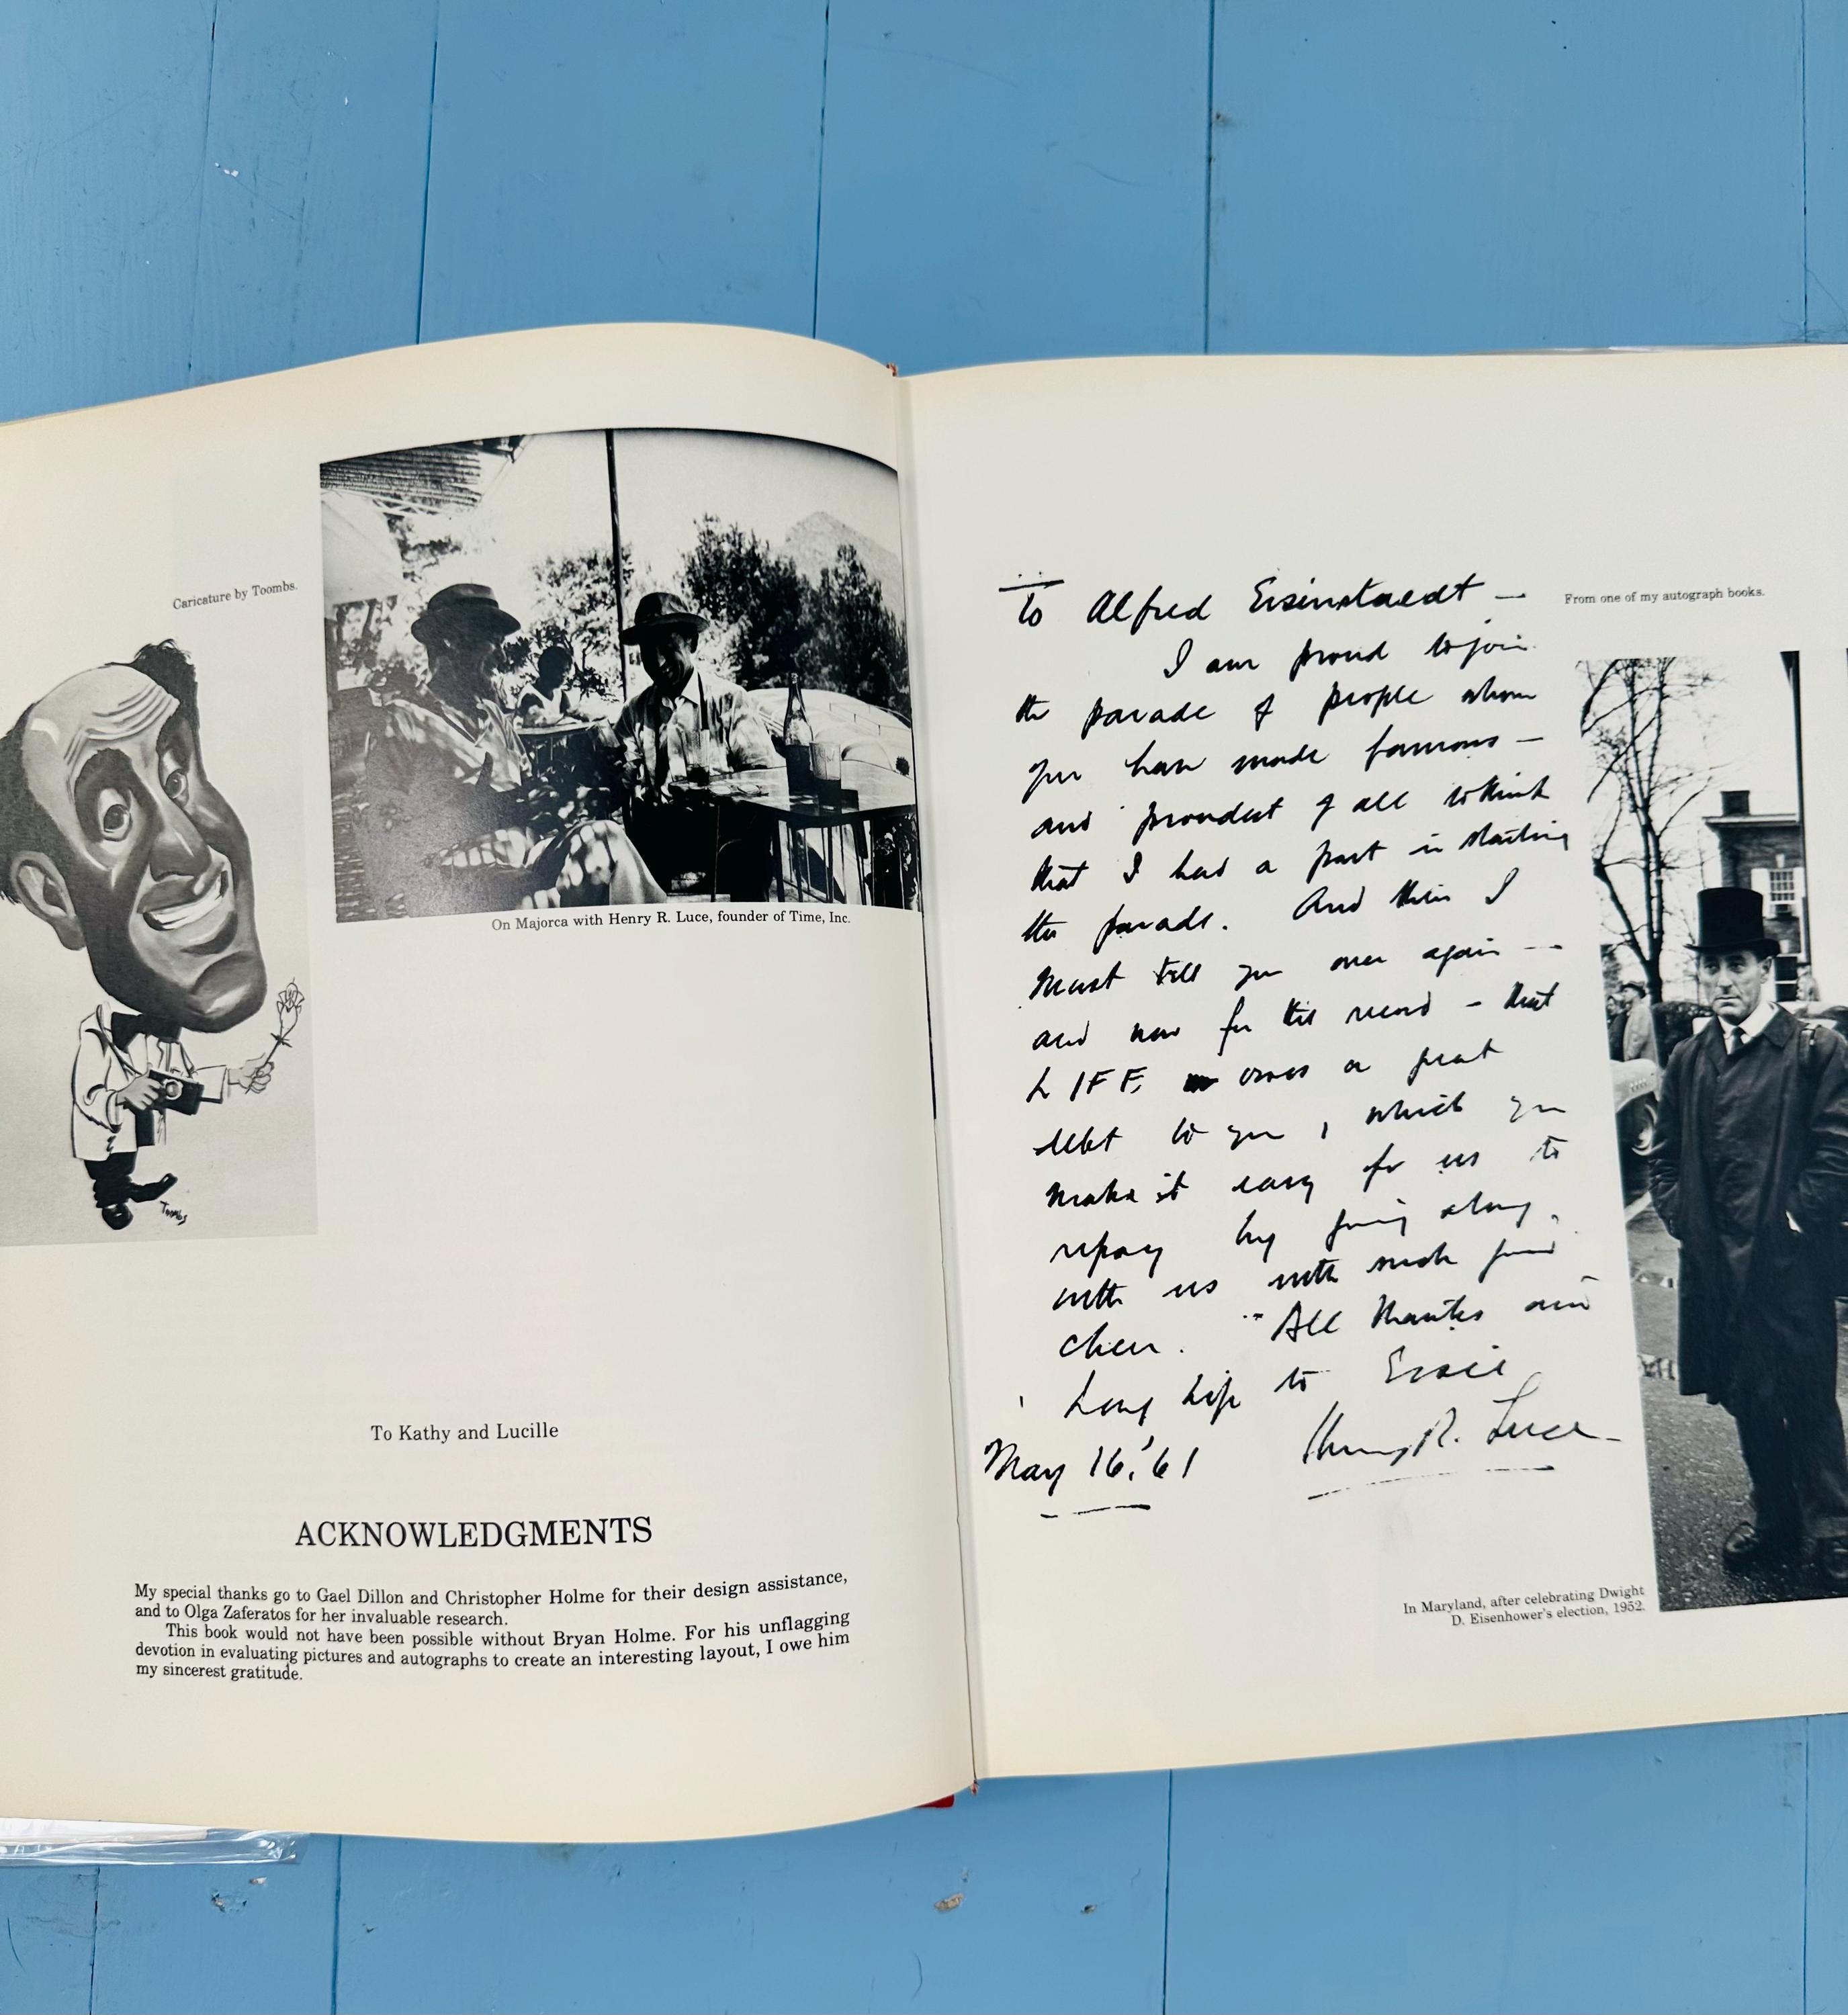 Caricature by Toombs.
Toombs
On Majorca with Henry R. Luce, founder of Time, Inc.
To Kathy and Lucille
ACKNOWLEDGMENTS
My special thanks go to Gael Dillon and Christopher Holme for their design assistance,
and to Olga Zaferatos for her invaluable research.
This book would not have been possible without Bryan Holme. For his unflagging
devotion in evaluating pictures and autographs to create an interesting layout, I owe him
my sincerest gratitude.
To Alfred Eisenstaedt —
I am proud to join
the parade of people whom
you have made famous —
and proudest of all to think
that I had a part in starting
the parade. And then I
must tell you over again —
and now for the record — that
LIFE owes a great
debt to you, which you
make it easy for us to
repay by going along
with us with such good
cheer. All thanks and
Long Life to Eisie
Henry R. Luce
May 16, '61
From one of my autograph books.
In Maryland, after celebrating Dwight
D. Eisenhower's election, 1952.